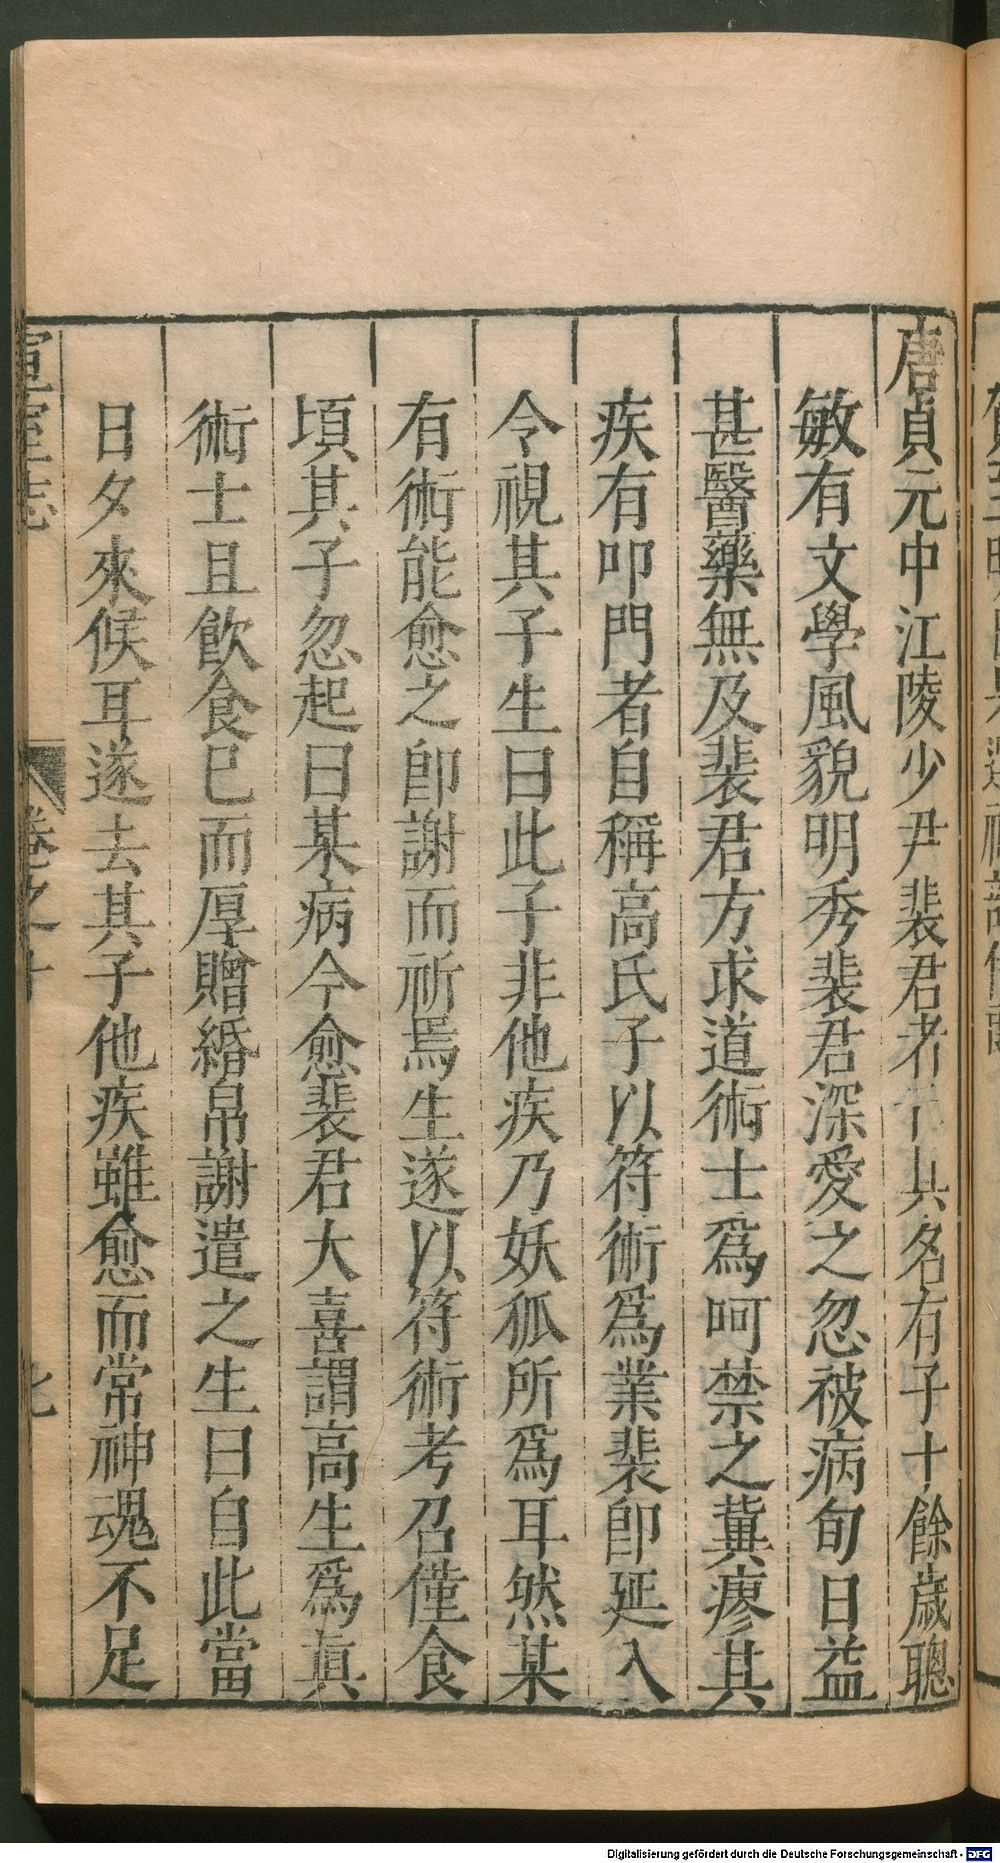 唐貞元中江陵少尹裴君者其名有子十餘歲聰
敏有文學風貌明秀裴君深愛之忽被病旬日益
甚醫藥無及裴君方求道術士爲呵禁之冀瘳其
疾有叩門者自稱高氏子以符術爲業裴卽延入
令視其子生曰此子非他疾乃妖狐所爲耳然某
有術能愈之卽謝而祈焉生遂以符術考召僅食
頃其子忽起曰某病今愈裴君大喜謂高生爲眞
術士且飲食已而厚贈緡帛謝遣之生曰自此當
日夕來候耳遂去其子他疾雖愈而常神魂不足
宣室志 卷之十
Digitalisierung gefördert durch die Deutsche Forschungsgemeinschaft - DFG